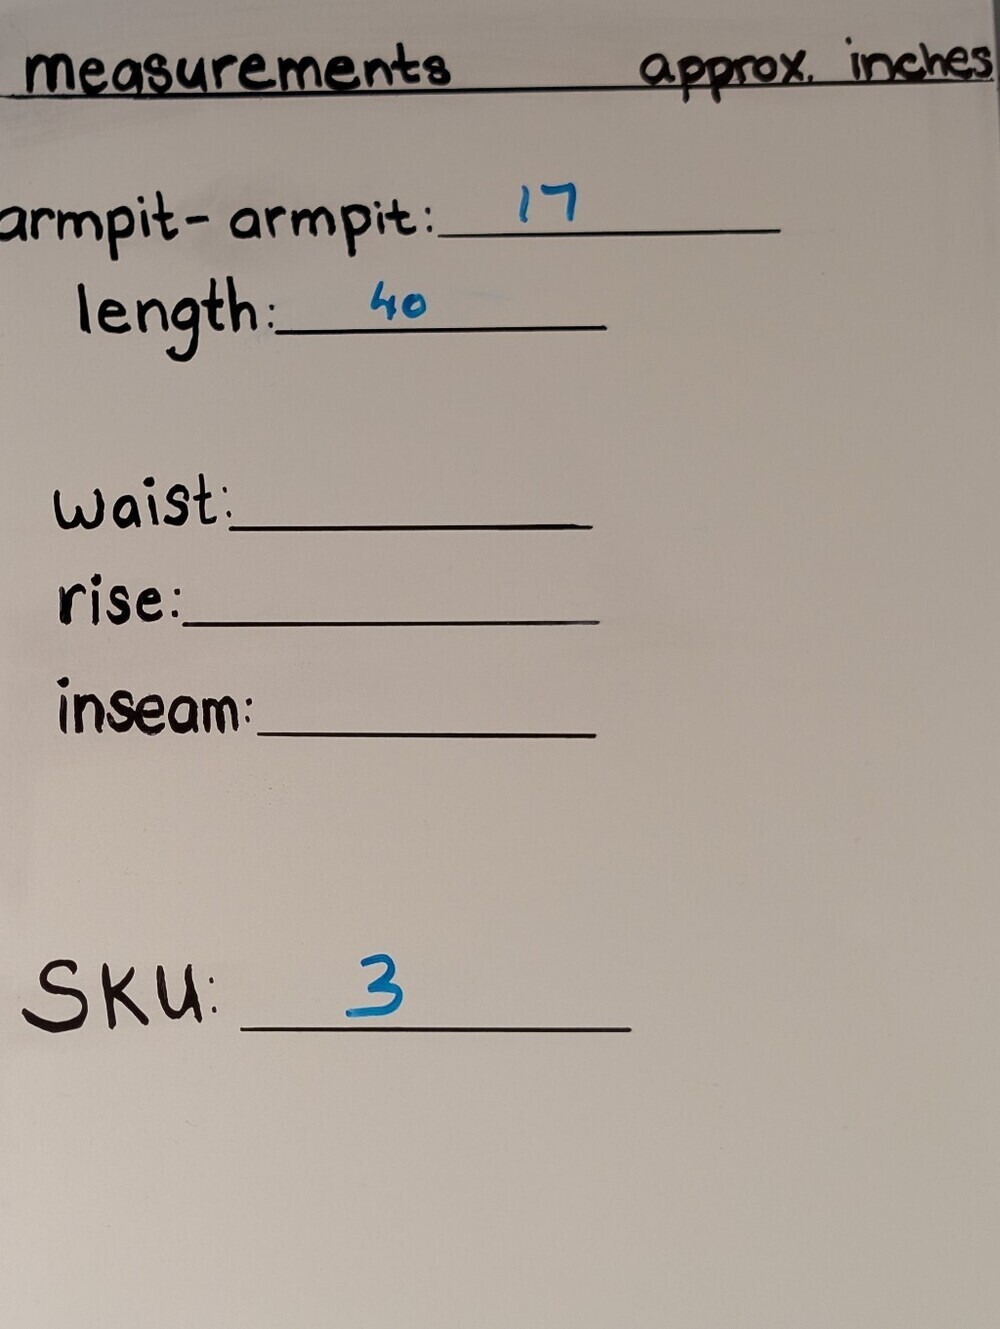 measurements approx. inches
armpit-armpit: 17
length: 40
waist:
rise:
inseam:
SKU: 3